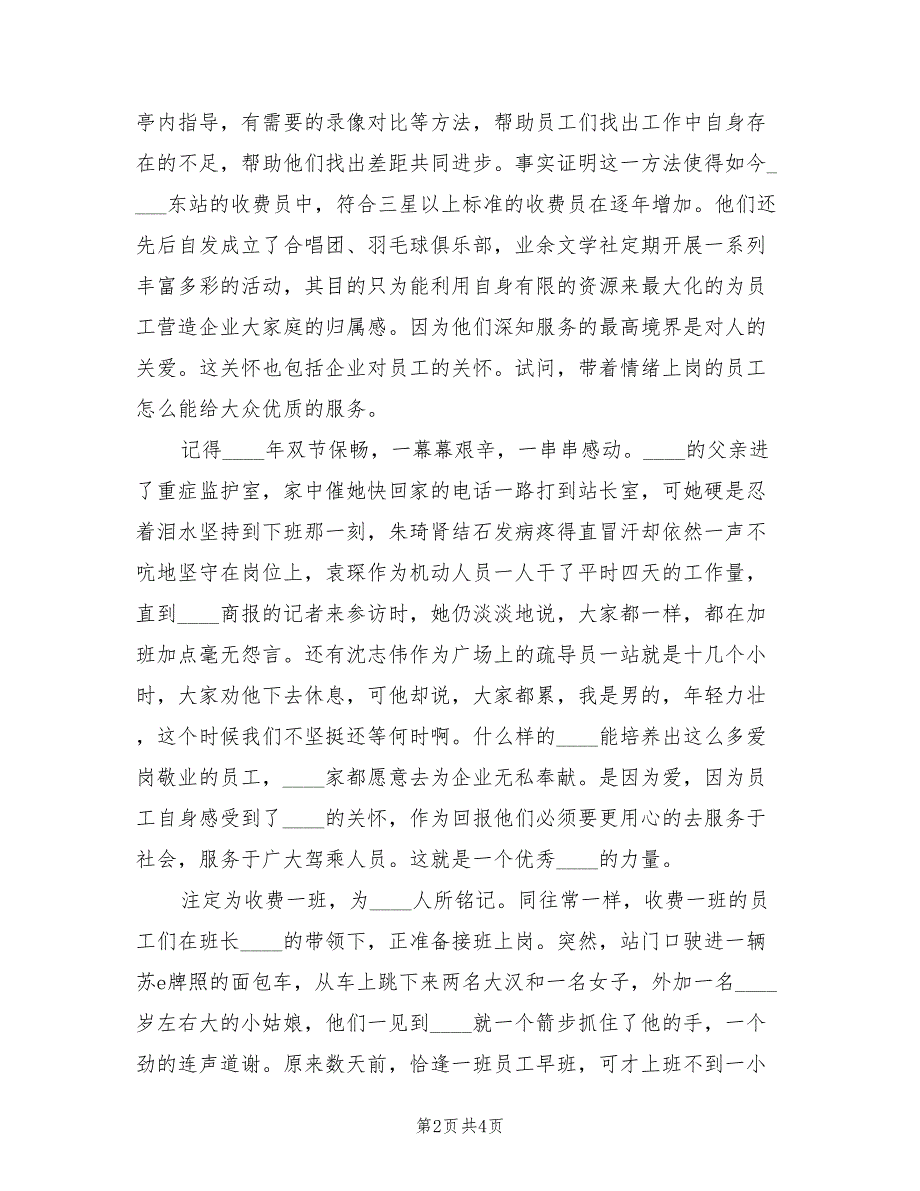 亭内指导，有需要的录像对比等方法，帮助员工们找出工作中自身存
在的不足，帮助他们找出差距共同进步。事实证明这一方法使得如今_
___东站的收费员中，符合三星以上标准的收费员在逐年增加。他们还
先后自发成立了合唱团、羽毛球俱乐部，业余文学社定期开展一系列
丰富多彩的活动，其目的只为能利用自身有限的资源来最大化的为员
工营造企业大家庭的归属感。因为他们深知服务的最高境界是对人的
关爱。这关怀也包括企业对员工的关怀。试问，带着情绪上岗的员工
怎么能给大众优质的服务。
记得____年双节保畅，一幕幕艰辛，一串串感动。____的父亲进
了重症监护室，家中催她快回家的电话一路打到站长室，可她硬是忍
着泪水坚持到下班那一刻，朱琦肾结石发病疼得直冒汗却依然一声不
吭地坚守在岗位上，袁琛作为机动人员一人干了平时四天的工作量，
直到____商报的记者来参访时，她仍淡淡地说，大家都一样，都在加
班加点毫无怨言。还有沈志伟作为广场上的疏导员一站就是十几个小
时，大家劝他下去休息，可他却说，大家都累，我是男的，年轻力壮
，这个时候我们不坚挺还等何时啊。什么样的____能培养出这么多爱
岗敬业的员工，____家都愿意去为企业无私奉献。是因为爱，因为员
工自身感受到了____的关怀，作为回报他们必须要更用心的去服务于
社会，服务于广大驾乘人员。这就是一个优秀____的力量。
注定为收费一班，为____人所铭记。同往常一样，收费一班的员
工们在班长____的带领下，正准备接班上岗。突然，站门口驶进一辆
苏e牌照的面包车，从车上跳下来两名大汉和一名女子，外加一名____
岁左右大的小姑娘，他们一见到____就一个箭步抓住了他的手，一个
劲的连声道谢。原来数天前，恰逢一班员工早班，可才上班不到一小
第2页共4页